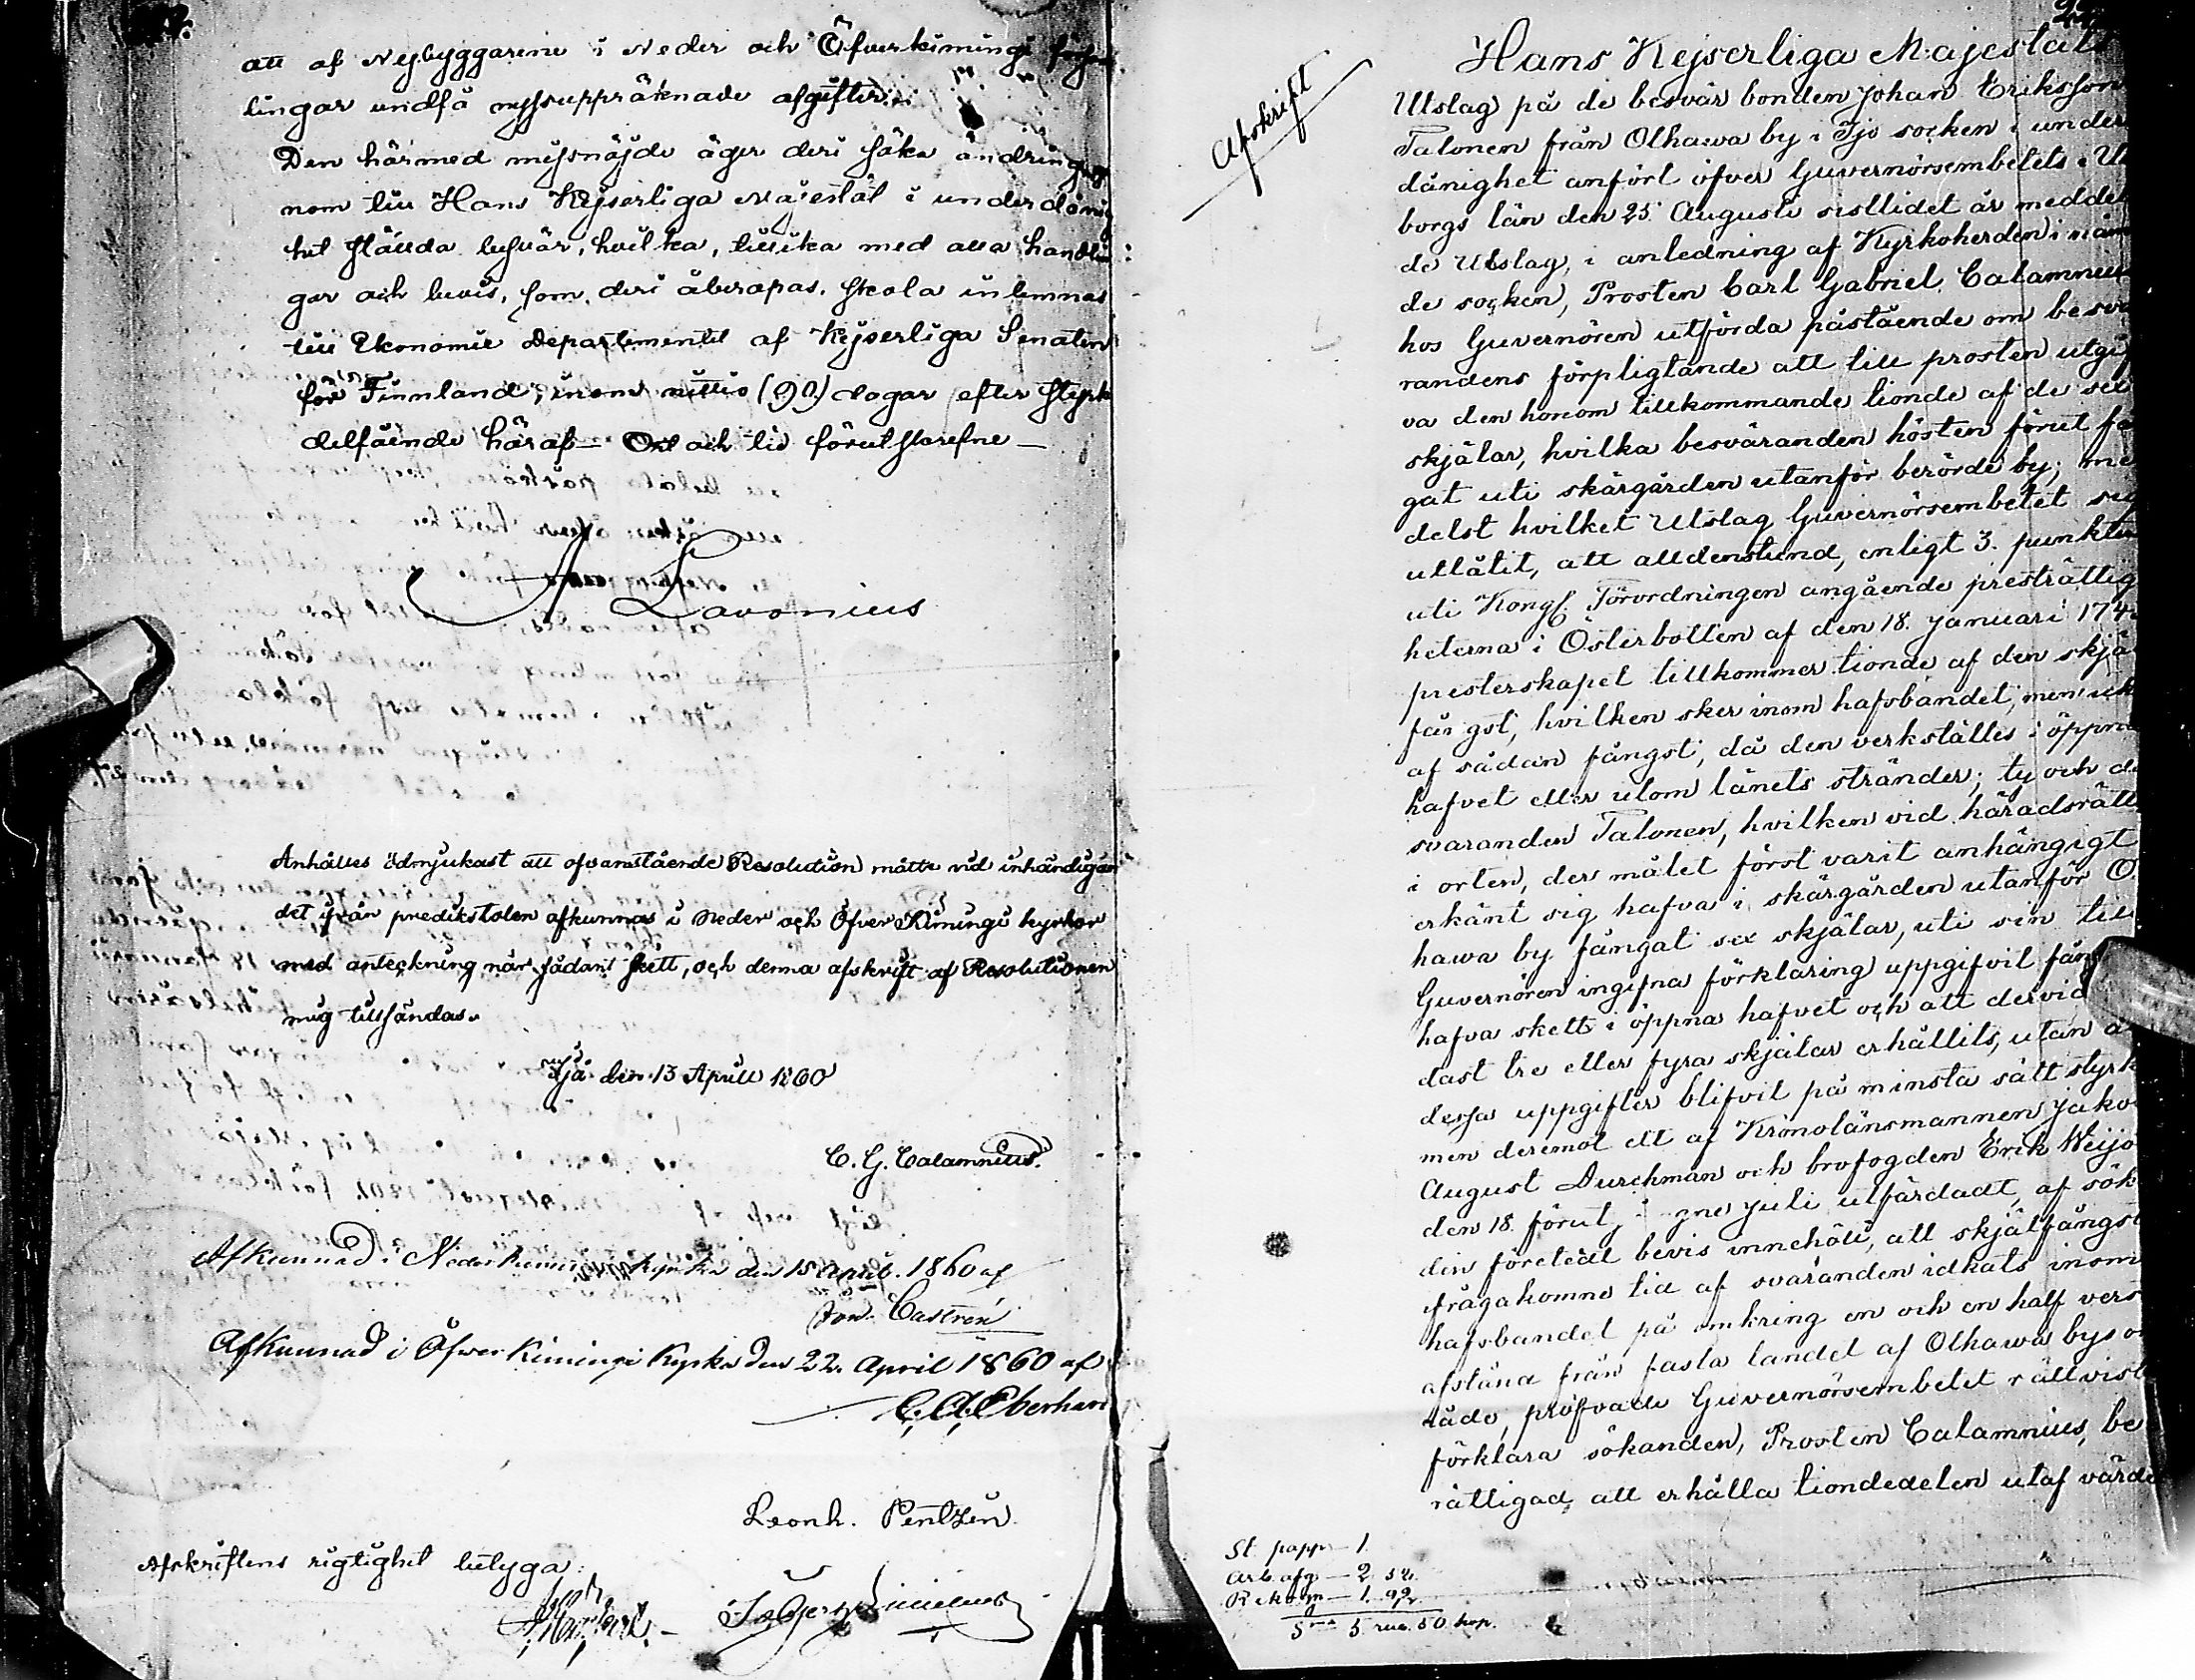 att af Nybyggarene i Neder och Öfverkimingi försam
lingar undfå nyssuppräknade afgifter.
Den härmed missnöjde äger deri söka ändring ge
nom till Hans Kejserliga Majestät i underdånig
het ställda besvär, hvilka, tillika med alla handlin
gar och bevis, som deri åberopas, skola inlemnas
till Ekonomie Departementet af Kejserliga Senaten
för Finnland, inom nittio (90) dagar efter Styrk
delfående häraf — Ort och tid förutskrefne —
A Lavonius
Anhålles ödmjukast att ofvanstående Resolution måtte vid inhändigan
det ifrån predikstolen afkunnas i Neder och Öfver Kimingi kyrkor
med anteckning, när sådant skett, och denna afskrift af Resolutionen
mig tillsändas.
Ijå den 13 Aprill 1860
C. G. Calamnius.
Afkunnad i Nederkimingi kyrka den 15 April. 1860 af
Jon. Castrén
Afkunnad i Öfwer Kimingi Kyrka den 22. April 1860 af
C. A. Eberhard
Leonh. Pentzin
Afskriftens rigtighet betyga:
Afskrift
Hans Kejserliga Majestäts
Utslag på de besvär bonden Johan Eriksson
Talonen från Olhawa by i Ijo socken i under
dånighet anfört öfver Guvernörsembetets i Ul
borgs län den 25 Augusti sistlidet år meddel
de Utslag, i anledning af Kyrkoherden i näm
de socken, Prosten Carl Gabriel Calamnius
hos Guvernören utförda påstående om besvä
randens förpligtande att till prosten utgif
va den honom tillkommande tionde af de sex
skjälar, hvilka besväranden hösten förut fån
gat uti skärgården utanför berörde by; me
delst hvilket Utslag Guvernörsembetet sig
utlåtit, att alldenstund, enligt 3. punkten
uti Kongl. Förordningen angående presträttig
heterna i Österbotten af den 18. Januari 174
presterskapet tillkommer tionde af den skjäl
fångst, hvilken sker inom hafsbandet, men ick
af sådan fångst, då den verkställes i öppna
hafvet eller utom länets stränder; ty och då
svaranden Talonen, hvilken vid häradsrätt
i orten, der målet först varit anhängigt
erkänt sig hafva i skärgården utanför Ol
hawa by fångat sex skjälar, uti sin till
Guvernören ingifna förklaring uppgifvit fång
hafva skett i öppna hafvet och att dervid
dast tre eller fyra skjälar erhållits, utan att
dessa uppgifter blifvit på minsta sätt styrk
men deremot ett af Kronolänsmannen Jakob
August Durchman och brofogden Erik Weijo
den 18. förut, gne Juli utfärdadt, af sök
den företedt bevis innehåll, att skjälfångst
ifrågakomne tid af svaranden idkats inom
hafsbandet på omkring en och en half vers
afstånd från fasta landet af Olhawa bys o
råde, pröfvade Guvernörsembetet rättvist
förklara sökanden, Prosten Calamnius, be
rättigad att erhålla tiondedelen utaf värde
St. papp. — 1.
Arb. afg. — 2 58.
Rekogn — 1. 92
S:ma 5 rub. 50 kop.